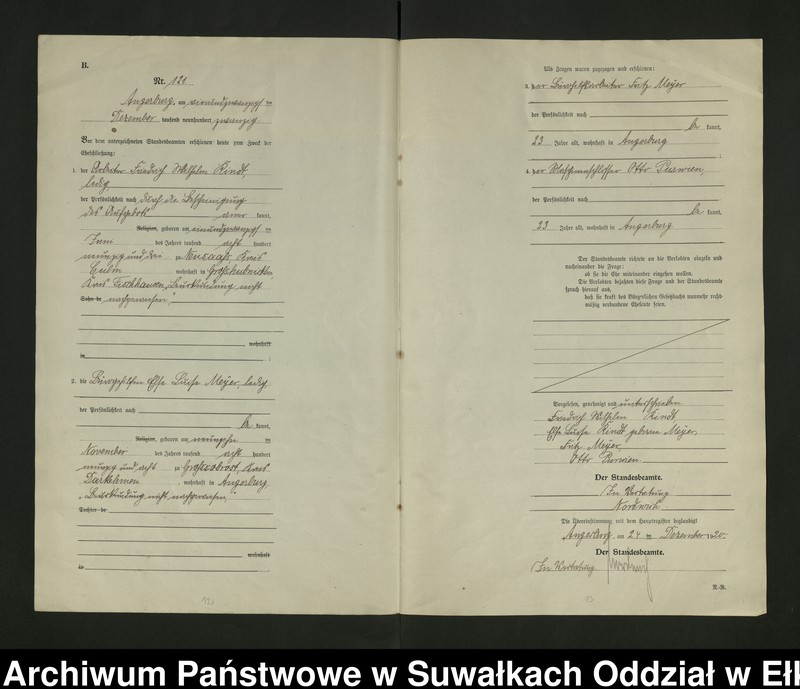 B.
Nr. 121
Angerburg, am vierundzwanzigsten
Dezember tausend neunhundert zwanzig
Vor dem unterzeichneten Standesbeamten erschienen heute zum Zweck der
Eheschließung:
1. der Arbeiter Friedrich Wilhelm Rindt,
ledig,
der Persönlichkeit nach durch die Bescheinigung
des Aufgebots anerkannt,
Religion, geboren am einundzwanzigsten
Juni des Jahres tausend acht hundert
neunzig und drei zu Kreis
wohnhaft in
Kreis Fischhausen, Beurkundung nicht
Sohn de nachgewiesen,
wohnhaft
in
2. die Bürogehilfin Else Luise Meyer, ledig,
der Persönlichkeit nach
be kannt,
Religion, geboren am neunzehnten
November des Jahres tausend acht hundert
neunzig und acht zu Kreis
Darkehmen, wohnhaft in Angerburg
"Beurkundung nicht nachgewiesen,"
Tochter de
wohnhaft
in
Als Zeugen waren zugezogen und erschienen:
3. der Fritz Meyer
der Persönlichkeit nach
be kannt,
23 Jahre alt, wohnhaft in Angerburg
4. der Maschinenschlosser Otto
der Persönlichkeit nach
be kannt,
23 Jahre alt, wohnhaft in Angerburg
Der Standesbeamte richtete an die Verlobten einzeln und
nacheinander die Frage:
ob sie die Ehe miteinander eingehen wollen.
Die Verlobten bejahten diese Frage und der Standesbeamte
sprach hierauf aus,
daß sie kraft des Bürgerlichen Gesetzbuchs nunmehr recht-
mäßig verbundene Eheleute seien.
Vorgelesen, genehmigt und unterschrieben
Friedrich Wilhelm Rindt,
Else Luise Rindt geborene Meyer,
Fritz Meyer,
Otto
Der Standesbeamte.
In Vertretung
Die Übereinstimmung mit dem Hauptregister beglaubigt
Angerburg, am 24 ten Dezember 1920
Der Standesbeamte.
In Vertretung
Archiwum Państwowe w Suwałkach Oddział w Ełk